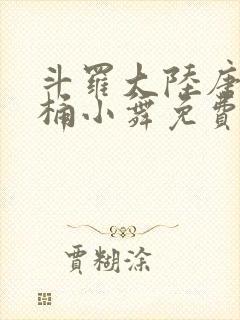 斗羅大陸唐
桶小舞免費
賈糊涂